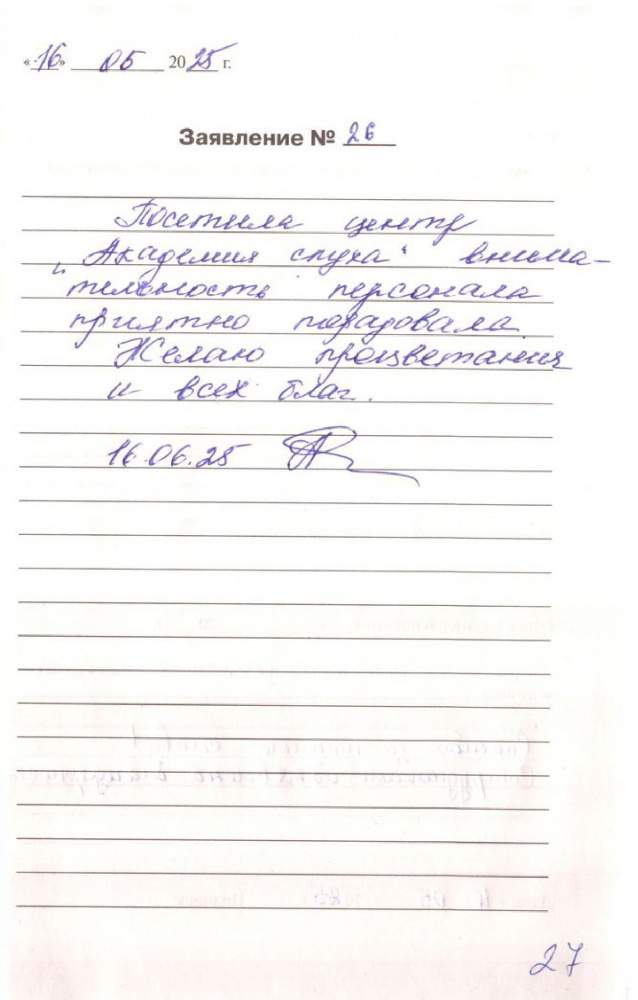 «16» 05 2025 г.
Заявление № 26
Посетила центр
"Академия слуха" внима-
тельность персонала
приятно порадовала.
Желаю процветания
и всех благ.
16.06.25
27